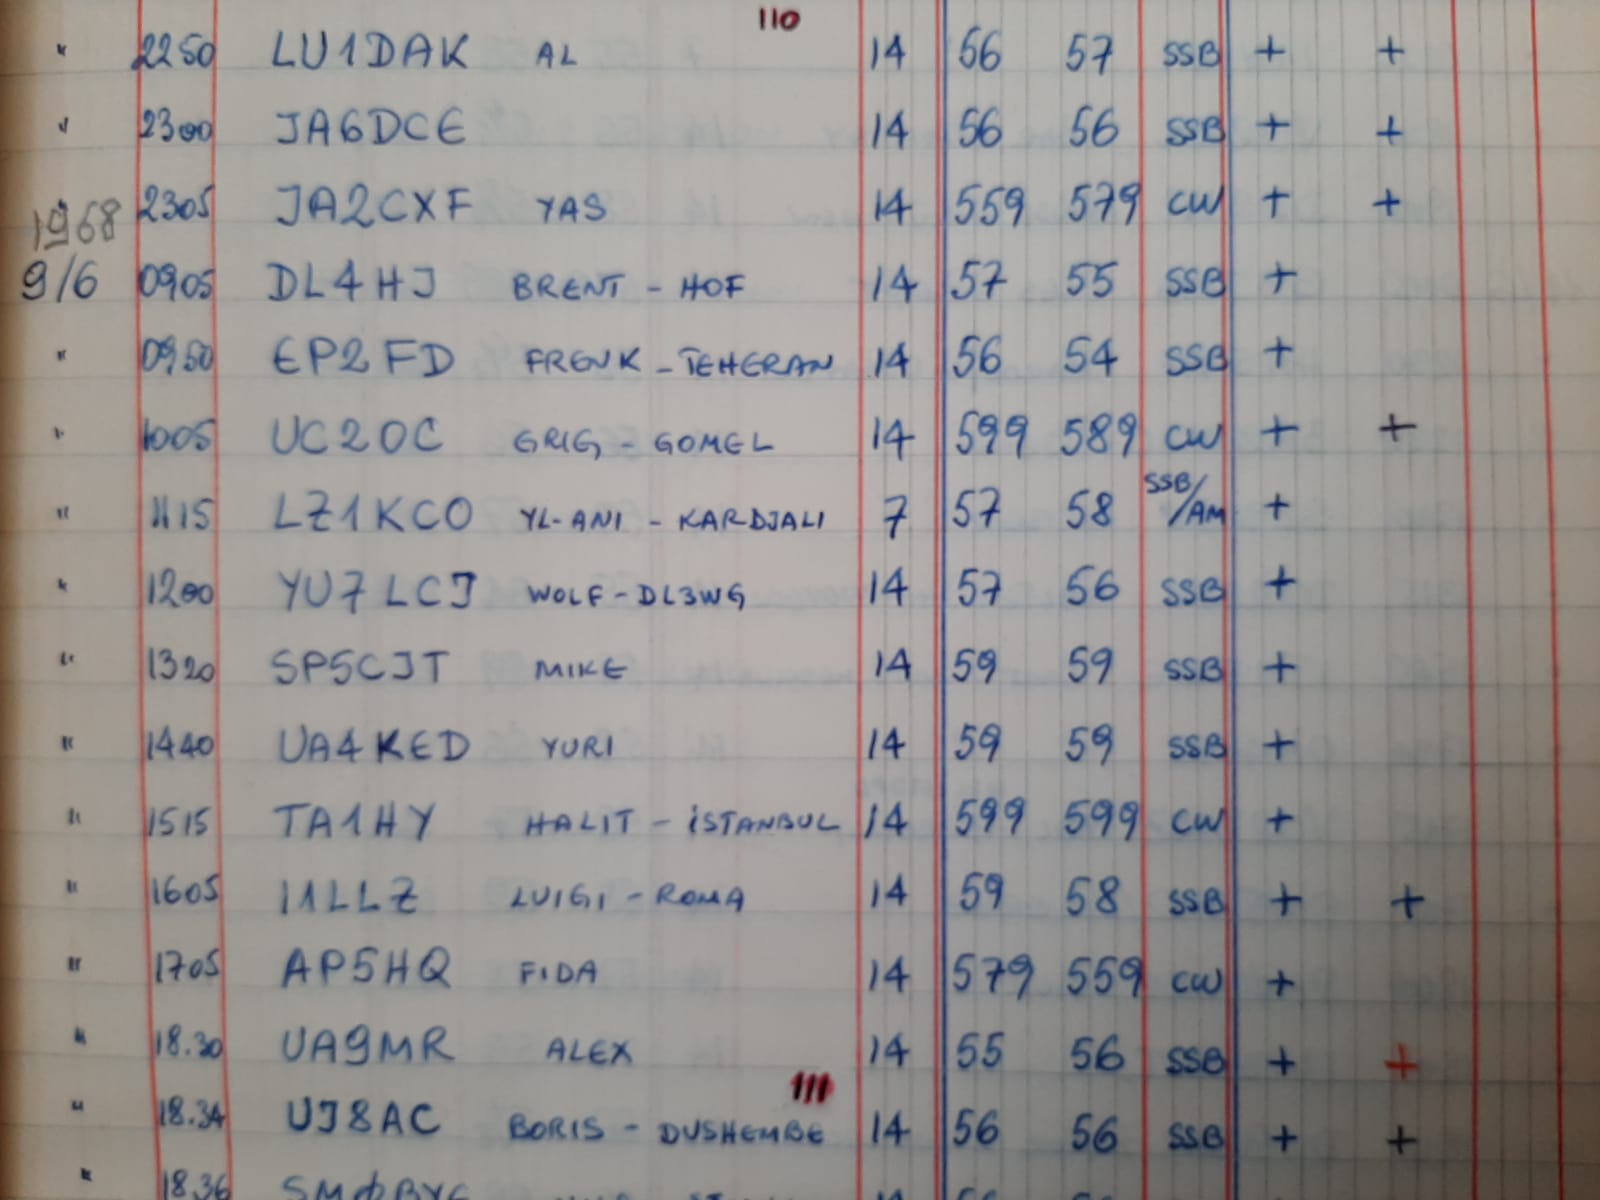 110
" 2250 LU1DAK AL 14 56 57 SSB + +
" 2300 JA6DCE 14 56 56 SSB + +
" 2305 JA2CXF YAS 14 559 579 CW + +
1968
9/6 0905 DL4HJ BRENT - HOF 14 57 55 SSB +
" 0950 EP2FD FRENK - TEHERAN 14 56 54 SSB +
" 1005 UC2OC GRIG - GOMEL 14 599 589 CW + +
" 1115 LZ1KCO YL-ANI - KARDJALI 7 57 58 SSB/AM +
" 1200 YU7LCJ WOLF - DL3WG 14 57 56 SSB +
" 1320 SP5CJT MIKE 14 59 59 SSB +
" 1440 UA4KED YURI 14 59 59 SSB +
" 1515 TA1HY HALIT - İSTANBUL 14 599 599 CW +
" 1605 I1LLZ LUIGI - ROMA 14 59 58 SSB + +
" 1705 AP5HQ FIDA 14 579 559 CW +
" 18.30 UA9MR ALEX 14 55 56 SSB + +
111
" 18.34 UJ8AC BORIS - DUSHEMBE 14 56 56 SSB + +
" 18.36